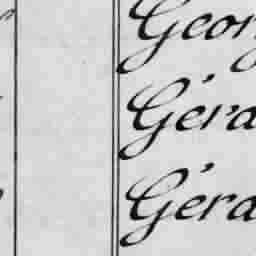 Geor
Géra
Géra